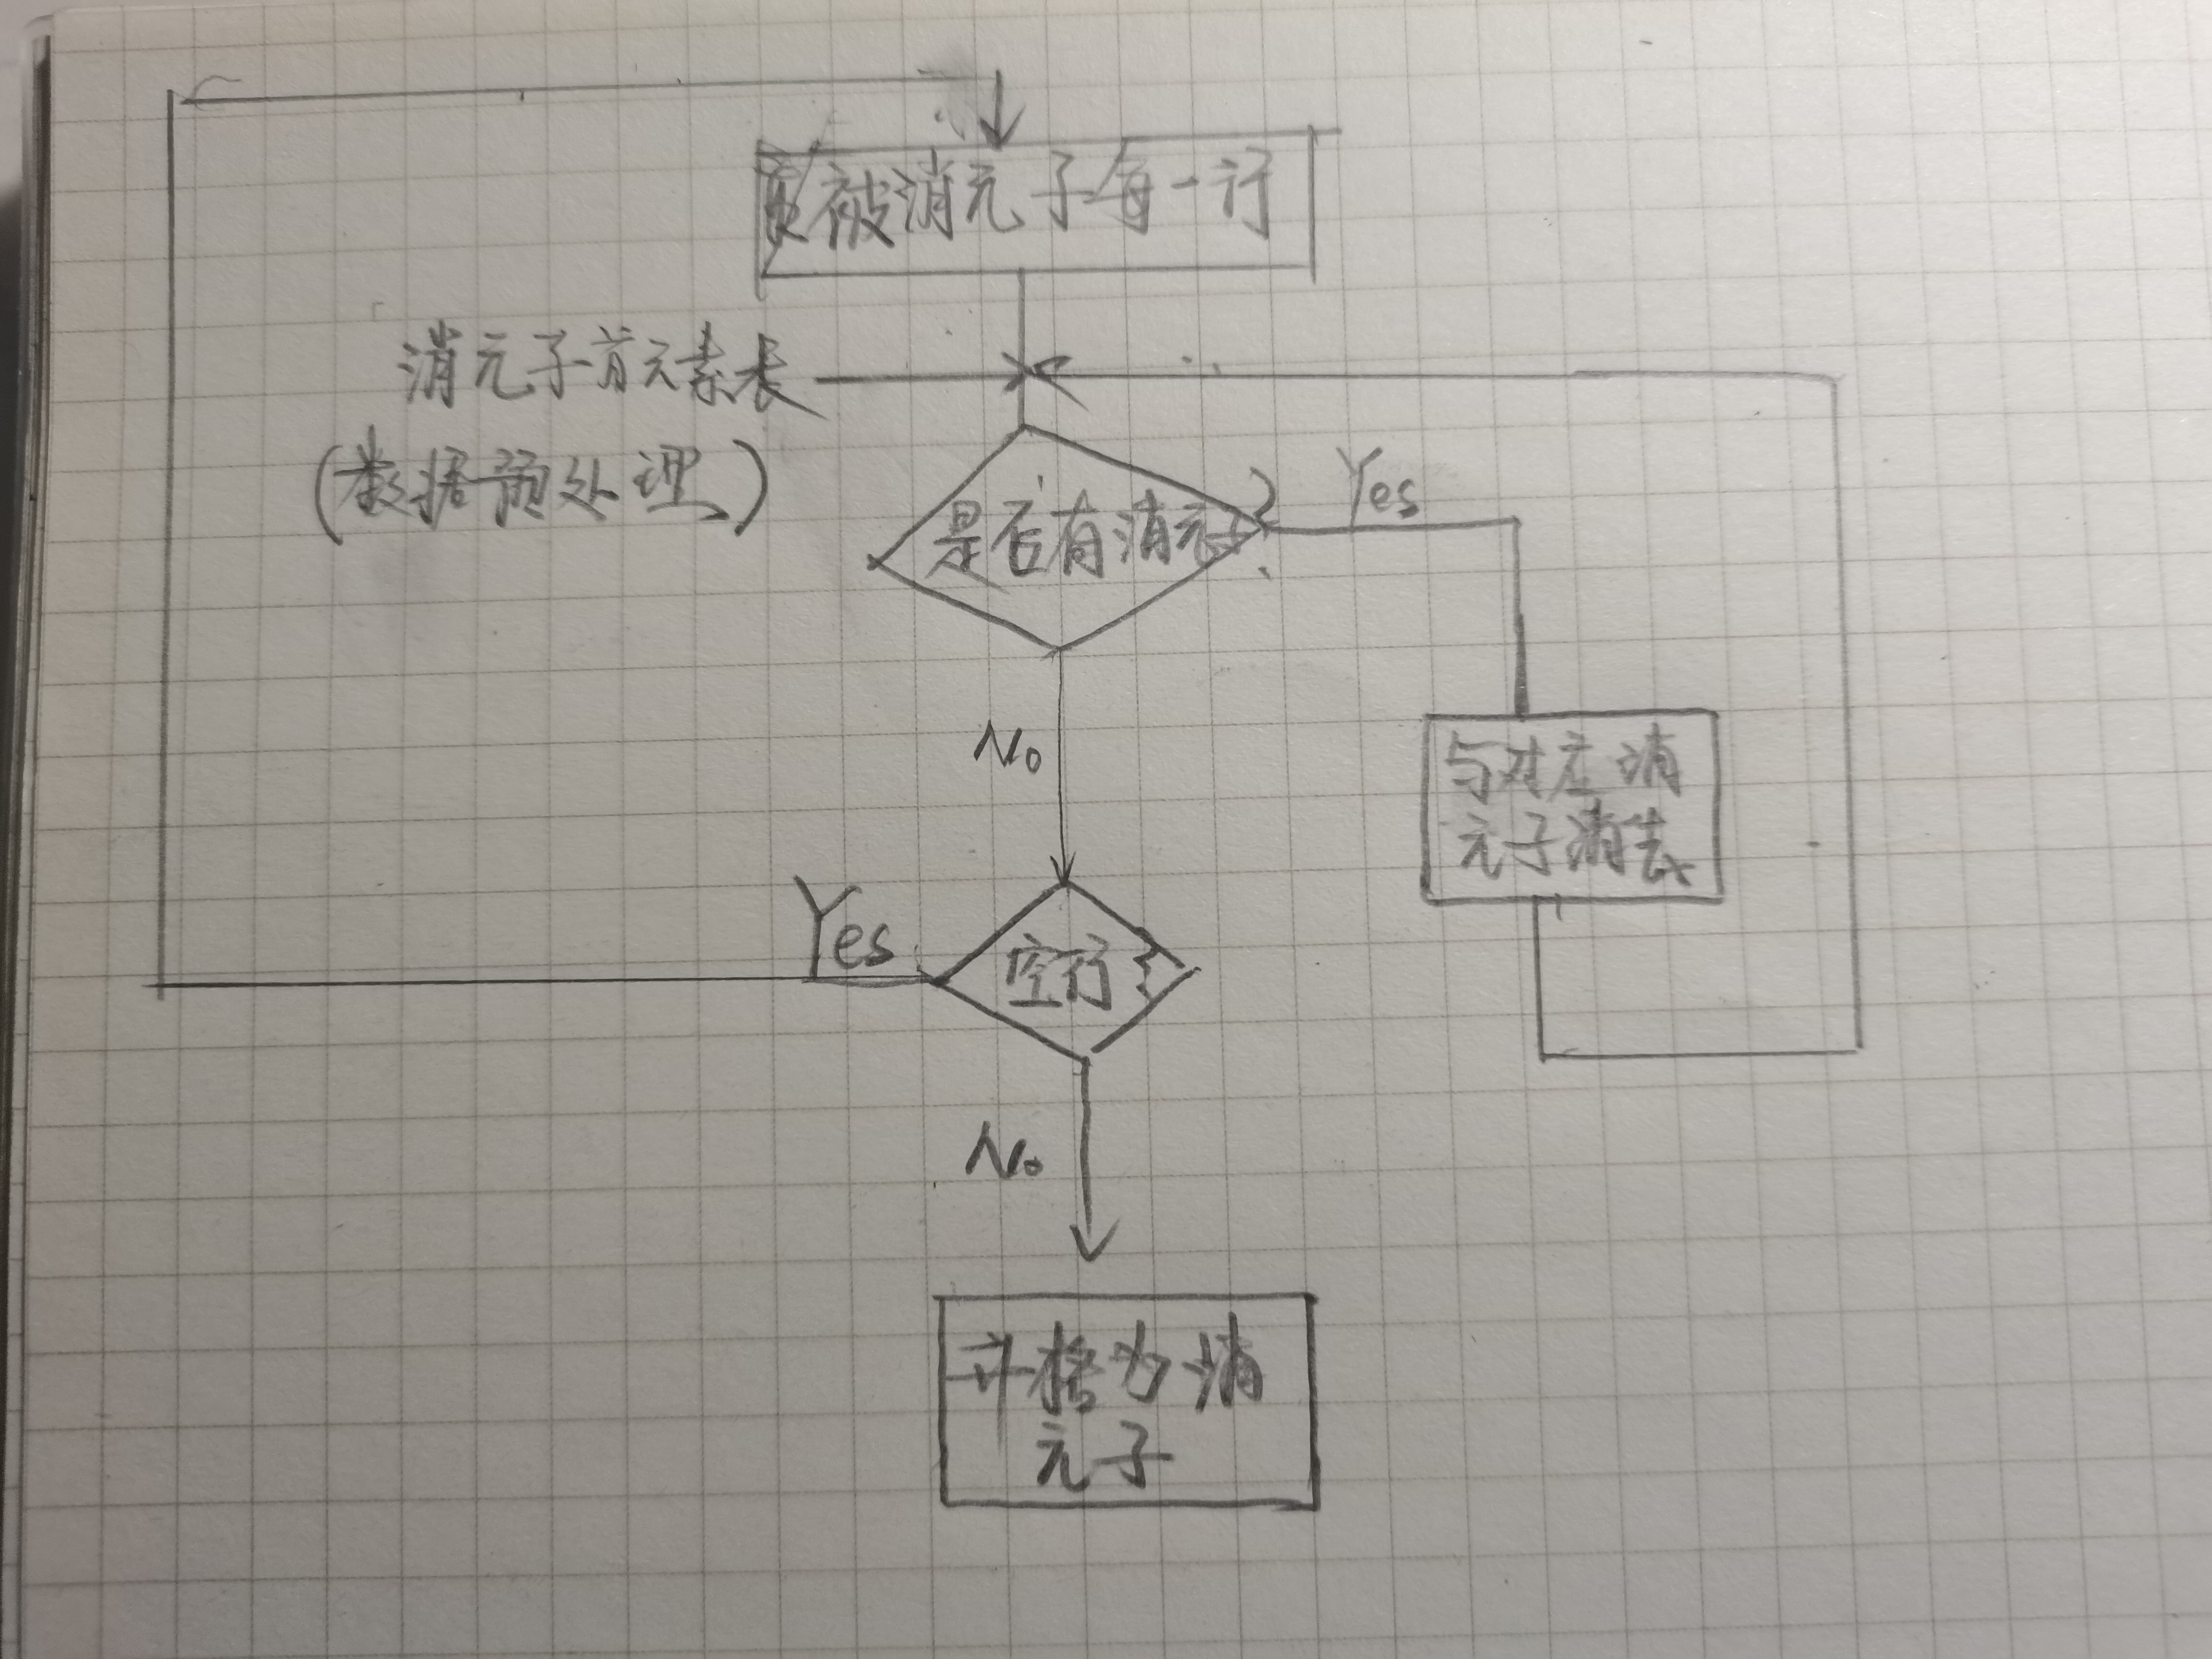 被消元子每一行
消元子首元素表
(数据预处理)
是否有消元子?
Yes
No
与对应消
元子消去
Yes
空行?
No
升格为消
元子